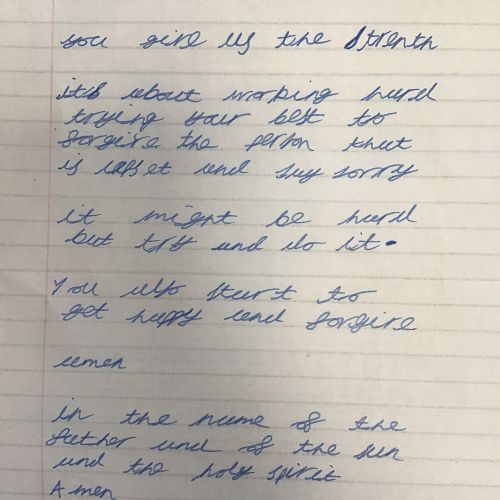 you give us the strenth
it's about working hard
trying your best to
forgive the person that
is upset and say sorry
it might be hard
but try and do it.
You also start to
get happy and forgive
amen
in the name of the
father and of the sun
and the holy spirit
Amen